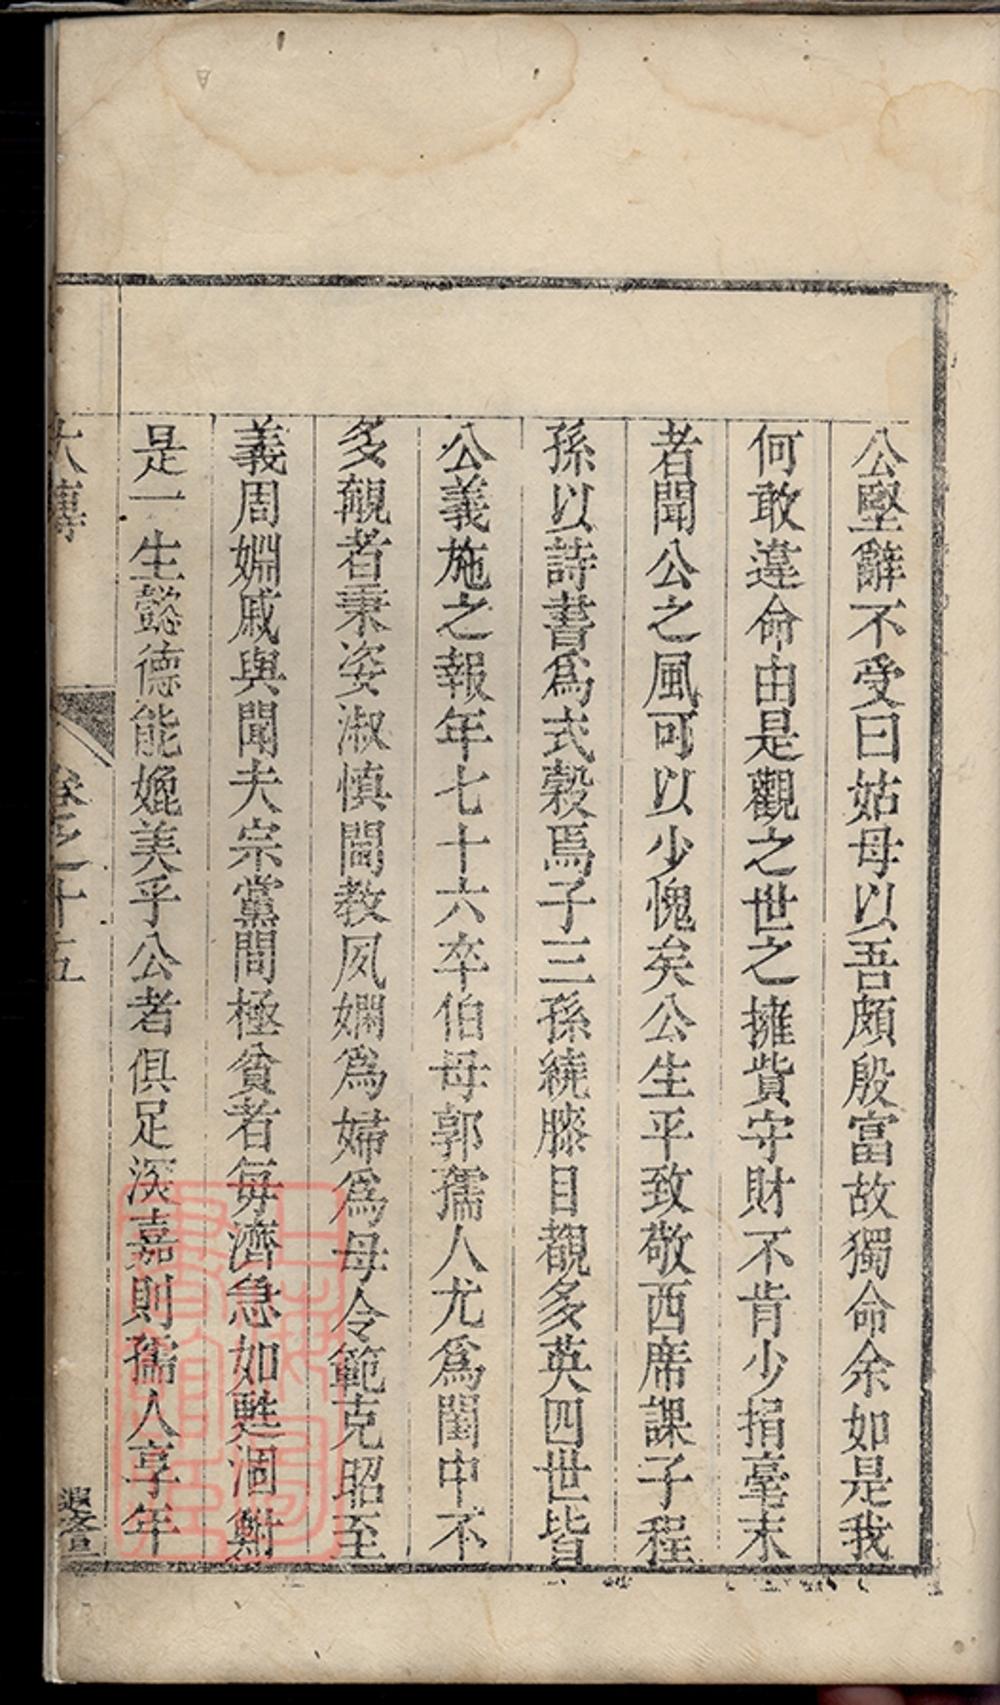 公堅辭不受曰姑母以吾頗殷富故獨命余如是我
何敢違命由是觀之世之擁貲守財不肯少捐毫末
者聞公之風可以少愧矣公生平致敬西席課子程
孫以詩書爲式穀焉子三孫繞膝目覩多英四世皆
公義施之報年七十六卒伯母郭孺人尤爲閨中不
多覯者秉姿淑慎閫教夙嫻爲婦爲母令範克昭至
義周婣戚與聞夫宗黨間極貧者每濟急如甦涸鮒
是一生懿德能媲美乎公者俱足深嘉則孺人享年
大傳
卷之十五